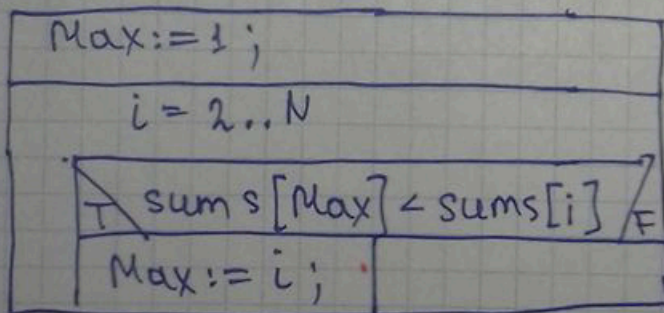 Max:=1;
i = 2..N
T sums[Max] < sums[i] F
Max:= i;